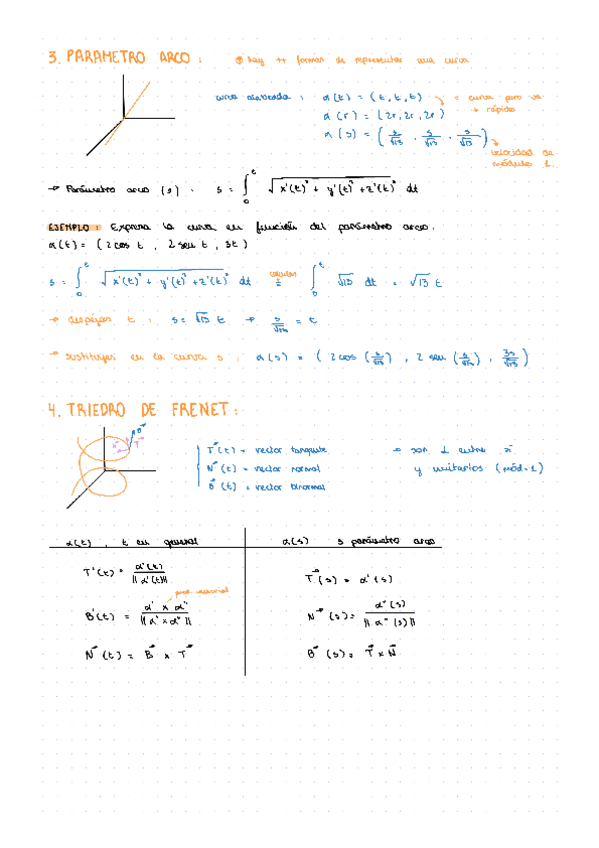 3. PARAMETRO ARCO : hay ++ formas de representar una curva
curva alabeada : α(t) = (t, t, t) = curva pero va + rápido
α(r) = (2r, 2r, 2r)
α(s) = (s/√13 , s/√13 , s/√13) velocidad de módulo 1.
→ Parámetro arco (s) : s = ∫₀ᵗ √(x'(t)² + y'(t)² + z'(t)²) dt
EJEMPLO : Expresa la curva en función del parámetro arco.
α(t) = (2 cos t , 2 sen t , 3t)
s = ∫₀ᵗ √(x'(t)² + y'(t)² + z'(t)²) dt calcular = ∫₀ᵗ √13 dt = √13 t
→ despejar t : s = √13 t → s/√13 = t
→ sustituyes en la curva s : α(s) = (2 cos (s/√13) , 2 sen (s/√13) , 3s/√13)
4. TRIEDRO DE FRENET :
T(t) = vector tangente → son ⊥ entre sí
N(t) = vector normal y unitarios (mód = 1)
B(t) = vector binormal
α(t) , t en general α(s) s parámetro arco
T(t) = α'(t) / ||α'(t)|| T(s) = α'(s)
prod. vectorial
B(t) = α' x α'' / ||α' x α''|| N(s) = α''(s) / ||α''(s)||
N(t) = B x T B(s) = T x N